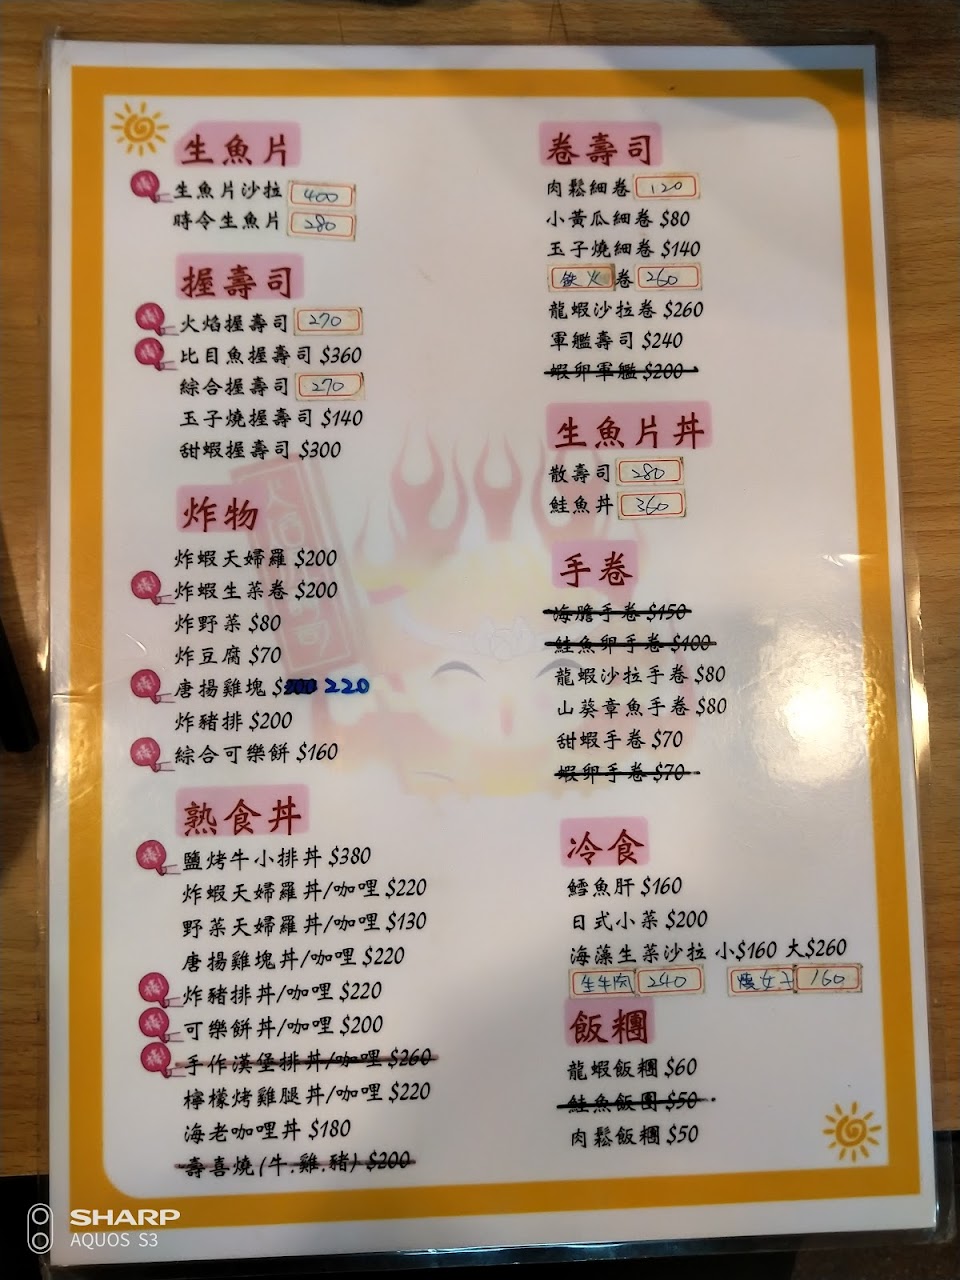 生魚片
生魚片沙拉 400
時令生魚片 280
握壽司
火焰握壽司 270
比目魚握壽司 $360
綜合握壽司 270
玉子燒握壽司 $140
甜蝦握壽司 $300
炸物
炸蝦天婦羅 $200
炸蝦生菜卷 $200
炸野菜 $80
炸豆腐 $70
唐揚雞塊 $ 220
炸豬排 $200
綜合可樂餅 $160
熟食丼
鹽烤牛小排丼 $380
炸蝦天婦羅丼/咖哩 $220
野菜天婦羅丼/咖哩 $130
唐揚雞塊丼/咖哩 $220
炸豬排丼/咖哩 $220
可樂餅丼/咖哩 $200
手作漢堡排丼/咖哩 $260
檸檬烤雞腿丼/咖哩 $220
海老咖哩丼 $180
壽喜燒(牛.雞.豬) $200
卷壽司
肉鬆細卷 120
小黃瓜細卷 $80
玉子燒細卷 $140
鉄火卷 260
龍蝦沙拉卷 $260
軍艦壽司 $240
蝦卵軍艦 $200
生魚片丼
散壽司 280
鮭魚丼 360
手卷
海膽手卷 $150
鮭魚卵手卷 $100
龍蝦沙拉手卷 $80
山葵章魚手卷 $80
甜蝦手卷 $70
蝦卵手卷 $70
冷食
鱈魚肝 $160
日式小菜 $200
海藻生菜沙拉 小$160 大$260
生牛肉 240 160
飯糰
龍蝦飯糰 $60
鮭魚飯團 $50
肉鬆飯糰 $50
SHARP
AQUOS S3